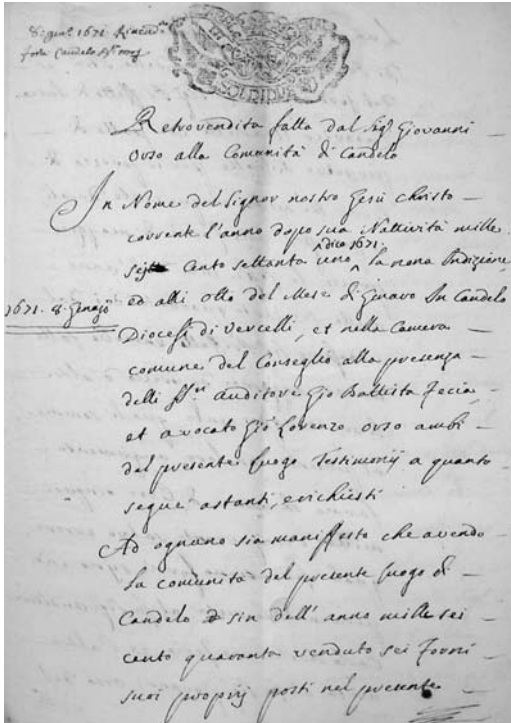 8: gen.º 1671
Retrovendita fatta dal Sig.r Giovanni
Orso alla Comunità di Candelo
In Nome del Signor nostro Gesù Christo
corrente l'anno dopo sua Nattività mille
Cento settanta uno dico 1671 la nona Indizione
1671. 8. Genaro
ed alli otto del Mese di Genaro In Candelo
Diocesi di Vercelli, et nella Camera
comune del Conseglio alla presenza
delli SS.ri auditore Gio Battista Fecia
et avocato Gio Lorenzo Orso ambi
del presente luogo Testimonij a quanto
segue astanti, e richiesti
Ad ognuno sia manifesto che avendo
la comunità del presente luogo di
Candelo sin dell'anno mille sei
cento quaranta venduto sei Forni
suoi proprij posti nel presente